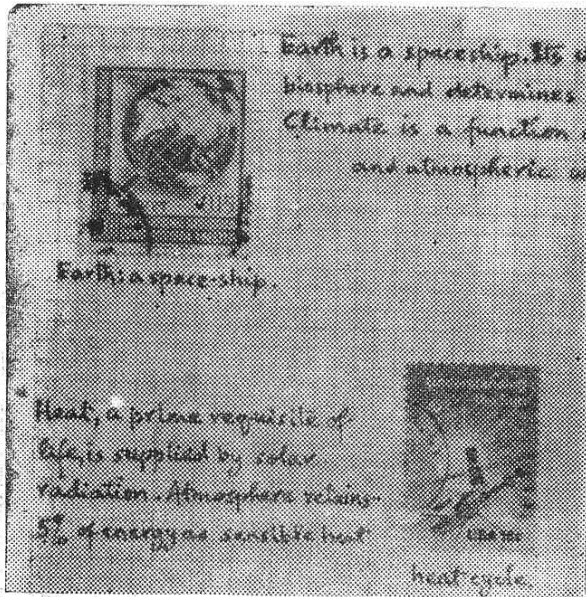 Earth is a spaceship. Its
biosphere and determines
Climate is a function
and atmospheric
Earth: a space-ship.
Heat, a prime requisite of
life, is supplied by solar
radiation. Atmosphere retains
5% of energy as sensible heat
heat cycle.